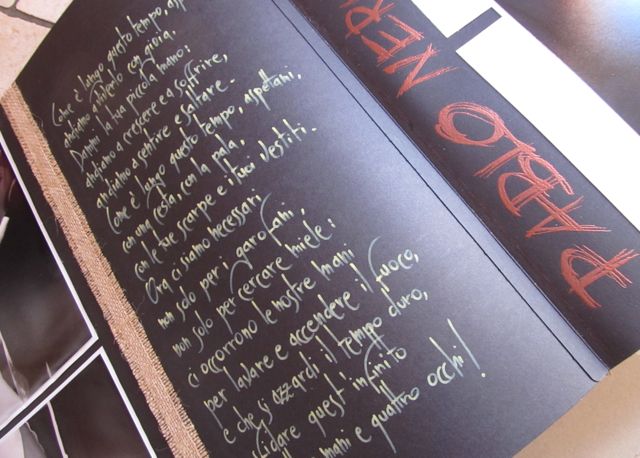 Come è lungo questo tempo, asp
andiamo a viverlo con gioia.
Dammi la tua piccola mano:
andiamo a crescere e a soffrire,
andiamo a sentire e saltare.
Come è lungo questo tempo, aspettami,
con una cesta, con la pala,
con le tue scarpe e i tuoi vestiti.
Ora ci siamo necessari
non solo per i garofani,
non solo per cercare miele:
ci occorrono le nostre mani
per lavare e accendere il fuoco,
e che si azzardi il tempo duro,
sfidare quest'infinito
mani e quattro occhi!
PABLO NER